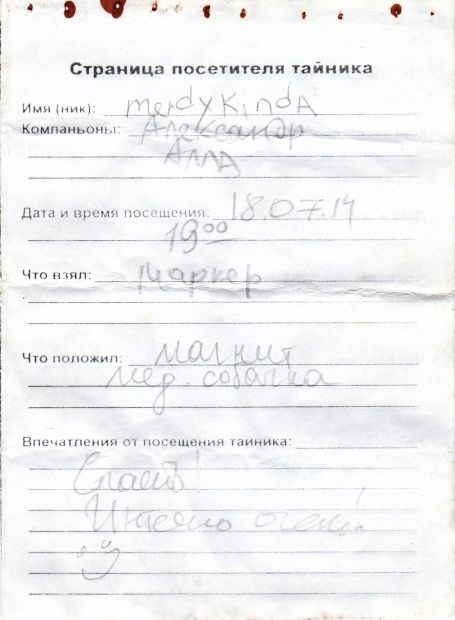 Страница посетителя тайника
Имя (ник): merdyKindA
Компаньоны: Александр
Алла
Дата и время посещения: 18.07.14
19⁰⁰
Что взял: Маркер
Что положил: магнит
мед. собачка
Впечатления от посещения тайника: